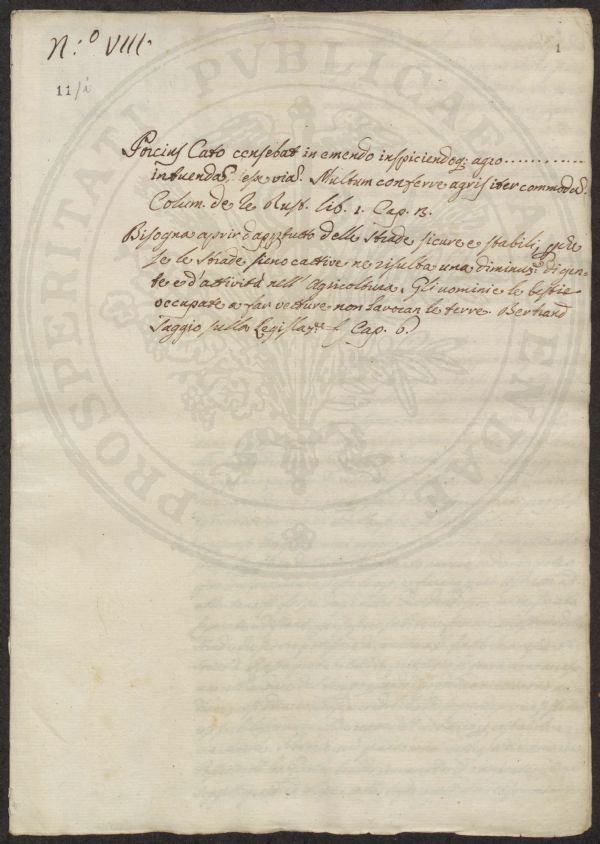 N.º VIII.
1
11/i
Porcius Cato censebat in emendo inspiciendoq; agro ............
intuendas esse vias. Multum conferre agris iter commodũ.
Colum. de re Rust. lib. 1. Cap. 3.
Bisogna aprir d'appertutto delle Strade sicure e stabili, perche
se le strade sieno cattive ne risulta una diminuz.e di gen-
te e d'attività nell'Agricoltura. Gli uomini e le bestie
occupate a far vetture non lavoran le terre. Bertrand
Saggio sulla Legislaz.e Cap. 6.
PROSPERITATI PVBLICAE AVGENDAE